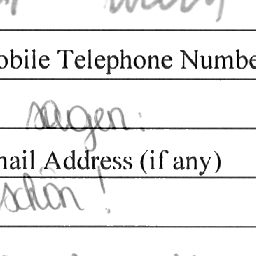 obile Telephone Numbe
sagen:
nail Address (if any)
schön!